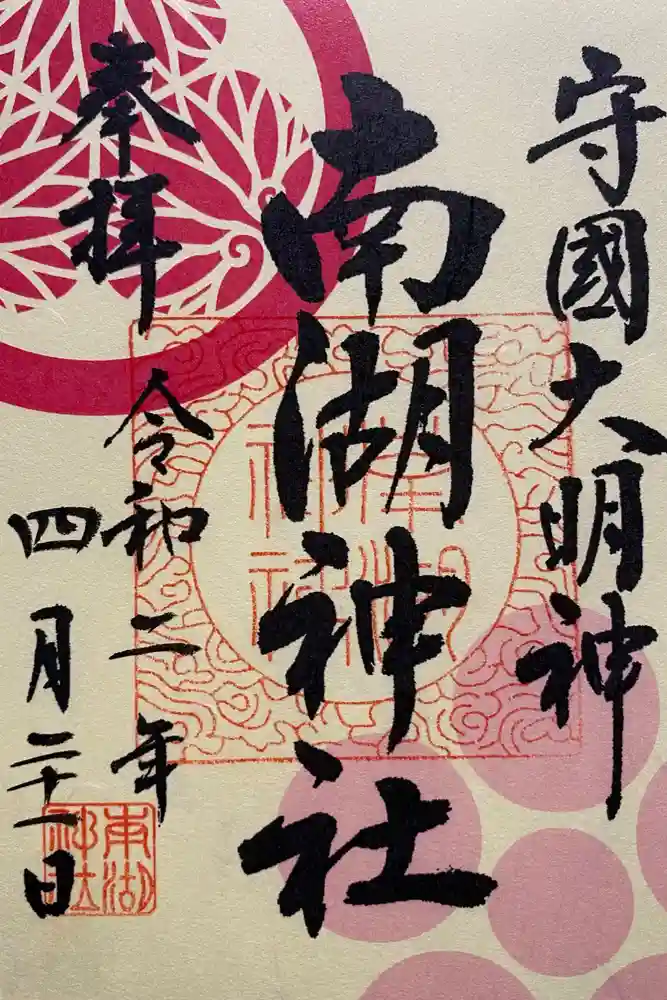 守國大明神
南湖神社
奉拝
令和二年
四月二十一日
南湖
神社